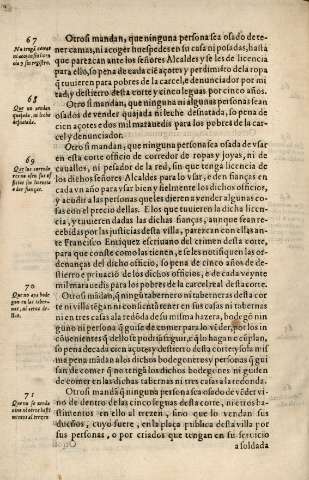 67
No tenga camas
ni acojan sin licen
cia y su registro.
Otrosi mandan, que ninguna persona sea osado de te-
ner camas, ni acoger huespedes en su casa ni posadas, hasta
que parezcan ante los señores Alcaldes y se les de licencia
para ello, so pena de cada ciē açotes y perdimiēto de la ropa
q̄ tuuieren para pobres de la carcel, e denunciador por mi
tad, y destierro desta corte y cinco leguas por cinco años.
68
Que no vendan
quajada, ni leche
desnatada.
Otro si mandan, que ninguna ni algunas personas sean
osados de vender quajada ni leche desnatada, so pena de
cien açotes e dos mil marauedis para los pobres de la car-
cel y denunciador.
69
Que los corredo
res no vsen sus of
ficios sin licencia
e dar fianças.
Otro si mandan, que ninguna persona sea osada de vsar
en esta corte officio de corredor de ropas y joyas, ni de
cauallos, ni pesador de la red, sin que tenga licencia de
los dichos señores Alcaldes para lo vsar, e den fianças en
cada vn año para vsar bien y fielmente los dichos officios,
y acudir a las personas que les dieren a vender algunas co-
sas con el precio dellas. E los que tuuieren la dicha licen-
cia, y tuuieren dadas las dichas fianças, aunque sean re-
cebidas por las justicias desta villa, parezcan con ellas an-
te Francisco Enriquez escriuano del crimen desta corte,
para que conste como las tienen, e se les notifiquen las or-
denanças del dicho officio, so pena de cinco años de des-
tierro e priuaciō de los dichos officios, e de cada veynte
mil marauedis para los pobres de la carcel real desta corte.
70
Que no aya bode
gon en las taber-
nas, ni cerca de-
llas.
Otro si mādan, q̄ ningū tabernero ni tabernera s desta cor
te ni villa tēgan ni consientā tener en sus casas ni tabernas
ni en tres casas a la redōda de su misma hazera, bodegō nin
guno ni persona q̄ guise de comer para lo vēder, por los in
conuenientes q̄ dello se podriā seguir, e q̄ lo hagan e cūplan,
so pena de cada cien açotes y destierro desta corte y so la mis
ma pena mādan a los dichos bodegoneros y personas q̄ gui
san de comer q̄ no tengā los dichos bodegones ni guiden
de comer en las dichas tabernas ni tres casas a la redonda.
71
Que no se venda
vino ni otros basti
mentos al trezen
Otro si mādā q̄ ninguna persona sea osado de vēder vi-
no de dentro de las cinco leguas desta corte, ni otros bas-
timentos en ello al trezen, sino que lo vendan sus
dueños, cuyo fuere, en la plaça publica desta villa por
sus personas, o por criados que tengan en su seruicio
a soldada